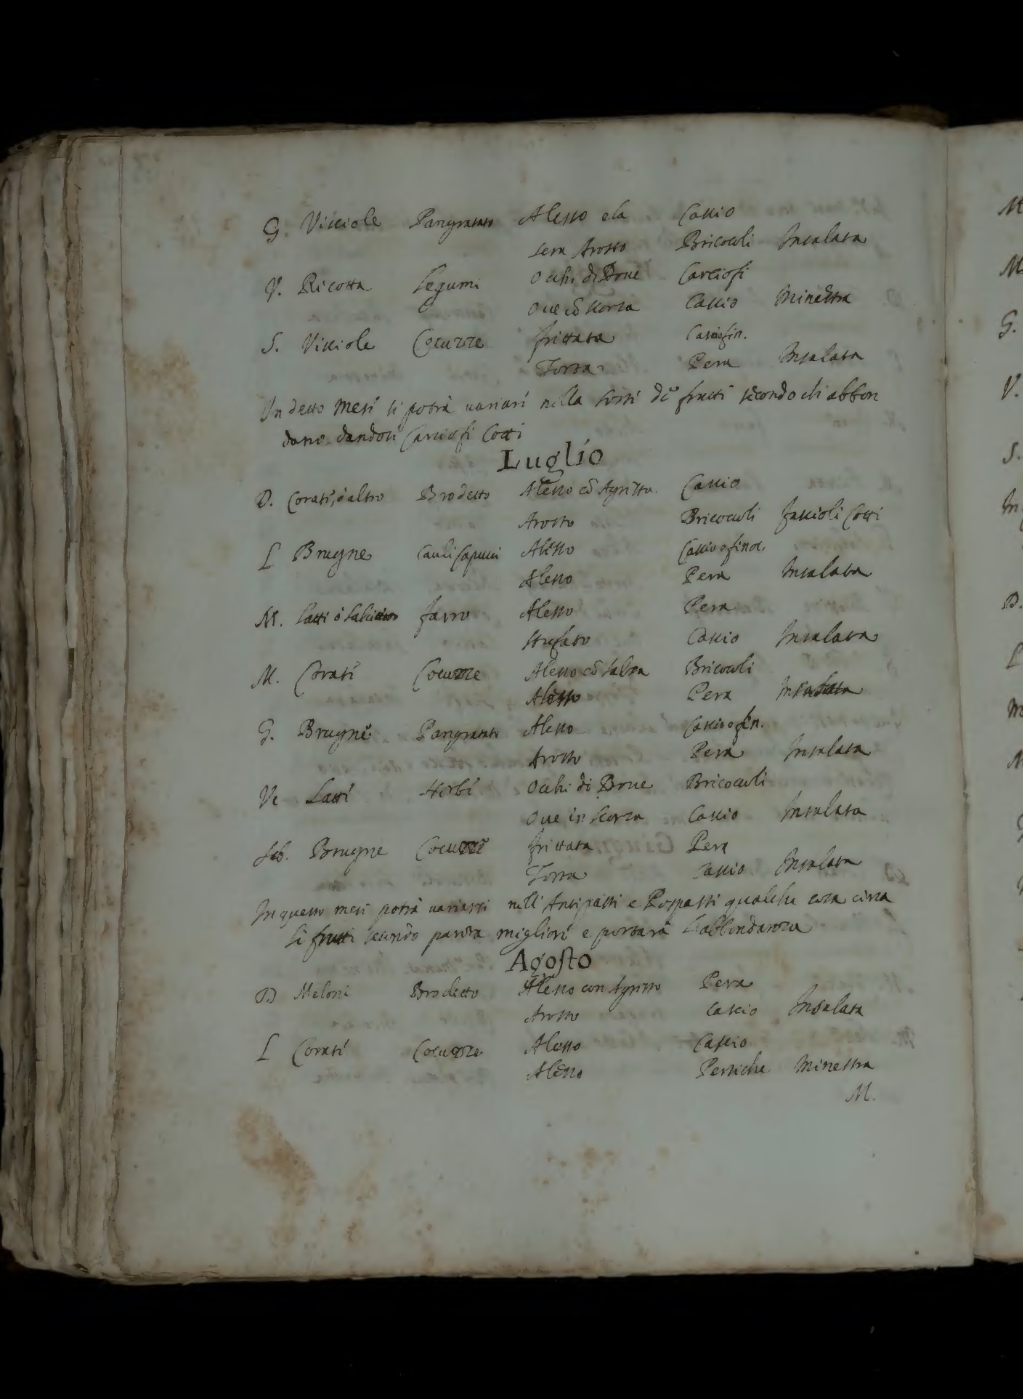 G. Visciole Pangrattato Alesso e la Cascio
sera Arosto Bricocoli Insalata
V. Ricotta Legumi Occhi di Boue Carciofi
Oue cō scorza Cascio Minestra
S. Visciole Cocuzze frittata Carciofin.
Torta Pera Insalata
In detto mesi si potrà uariari nella sorti di frutti secondo che abbon
dano dandoli Carciofi Cotti
Luglio
D. Corati, ò altro Brodetto Alesso cō Agresto Cascio
Arosto Bricocoli fascioli Cotti
L Brugne Cauli Capucci Alesso Cascio e finoc.
Alesso Pera Insalata
M. Latti ò farro Alesso Pera
Stufato Cascio Insalata
M. Corati Cocuzze Alesso cō salza Bricocoli
Alesso Pera Insalata
G. Brugne Pangratt Alesso Cascio e fin.
Arosto Pera Insalata
Ve Latti Herbi Occhi di Boue Bricocoli
Oue in scorza Cascio Insalata
Sab. Brugne Cocuzze frittata Pera
Torta Cascio Insalata
In questo mesi potrà uariarsi nell' Antipasti e Pospasti qualche cosa circa
li frutti secondo parerà migliori e portarà L'abbondanza
Agosto
D Meloni Brodetto Alesso con Agresto Pera
Arosto Cascio Insalata
L Corati Cocuzze Alesso Cascio
Alesso Persiche Minestra
M.